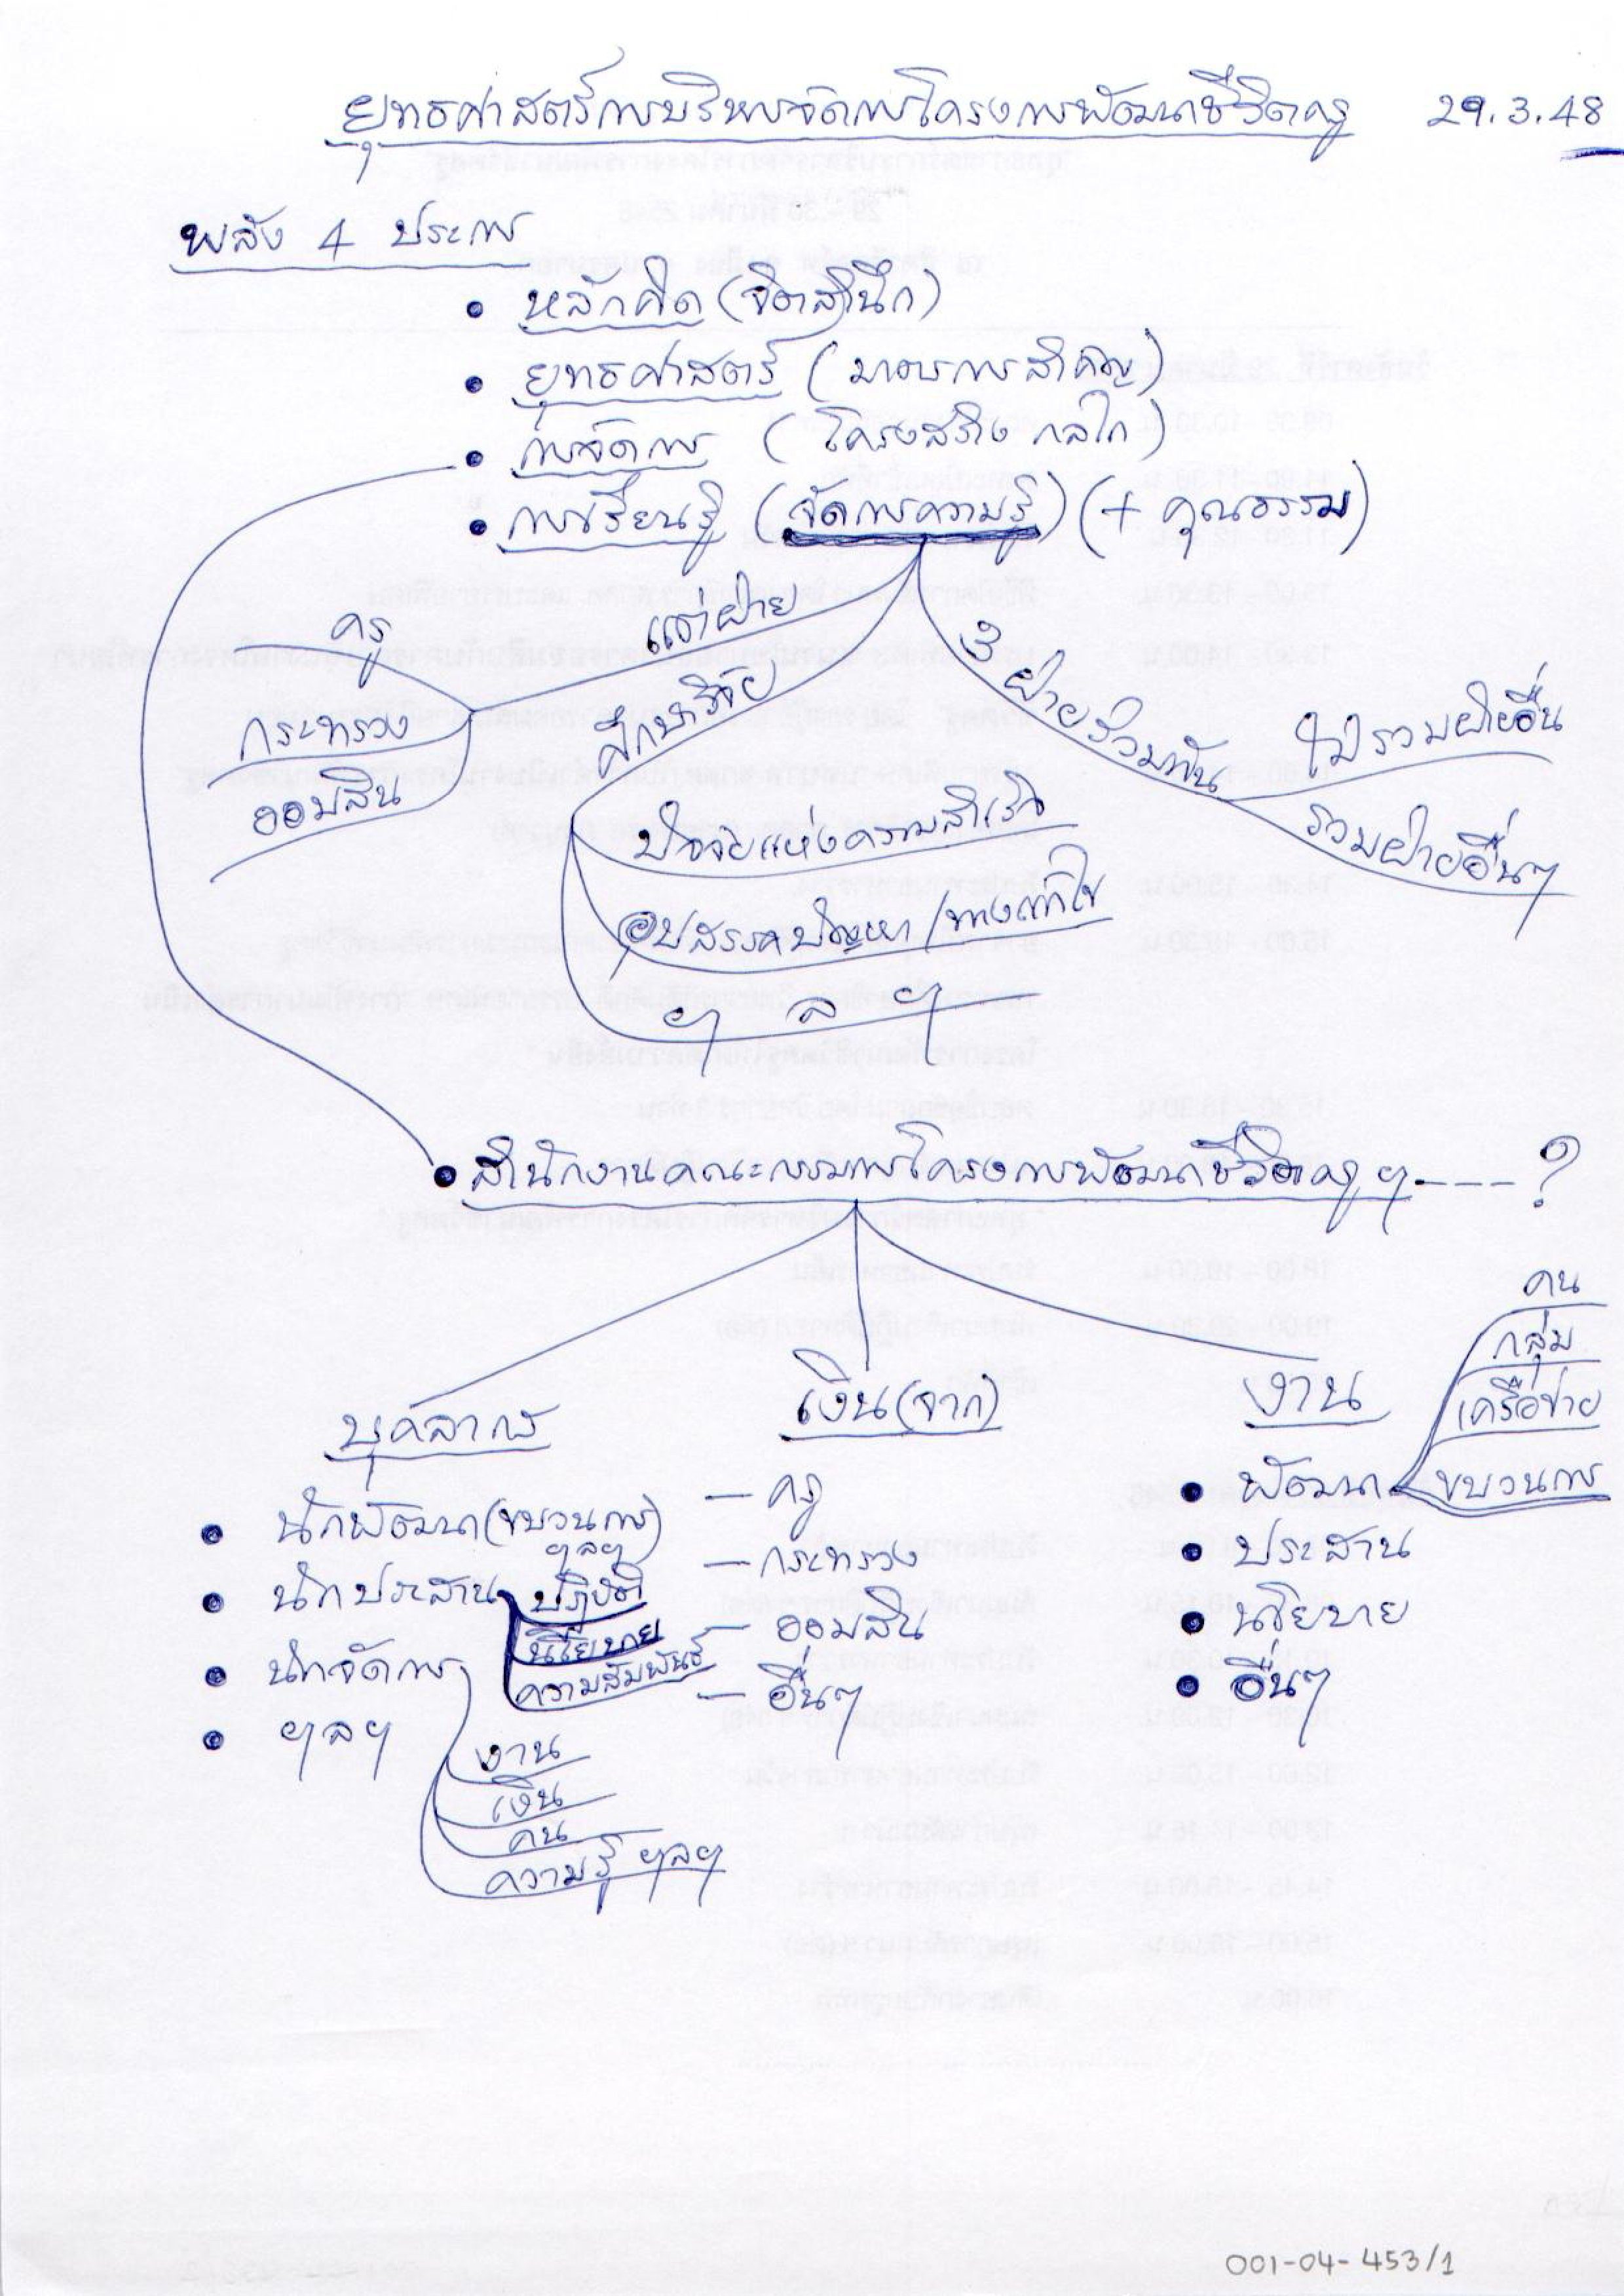 ยุทธศาสตร์การบริหารจัดการโครงการพัฒนาชีวิตครู 29.3.48
พลัง 4 ประการ
• หลักคิด (จิตสำนึก)
• ยุทธศาสตร์ (มาตรการสำคัญ)
• การจัดการ (โครงสร้าง กลไก)
• การเรียนรู้ (จัดการความรู้) (+ คุณธรรม)
แต่ละฝ่าย
ครู
กระทรวง
ออมสิน
ศึกษาวิจัย
ปัจจัยแห่งความสำเร็จ
อุปสรรคปัญหา/ทางแก้ไข
ฯ ล ฯ
3 ฝ่ายร่วมกัน
ไม่รวมฝ่ายอื่น
รวมฝ่ายอื่นๆ
• สำนักงานคณะกรรมการโครงการพัฒนาชีวิตครู ฯ ---- ?
บุคลากร
• นักพัฒนา (ขบวนการ)
ฯลฯ
• นักประสาน
ปฏิบัติ
นโยบาย
ความสัมพันธ์
• นักจัดการ
งาน
เงิน
คน
ความรู้ ฯลฯ
• ฯลฯ
เงิน (จาก)
– ครู
– กระทรวง
– ออมสิน
– อื่นๆ
งาน
• พัฒนา
คน
กลุ่ม
เครือข่าย
ขบวนการ
• ประสาน
• นโยบาย
• อื่นๆ
001-04-453/1